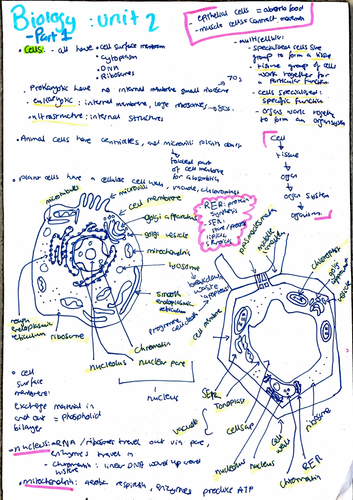 Biology : unit 2
- Part 1
- epithelial cells = absorb food
- muscle cells = contract
• Cells: - all have • cell surface membrane
• cytoplasm
• DNA
• Ribosomes
- Prokaryotic have no internal membrane small ribosome → 70s
- Eukaryotic : internal membrane, large ribosomes → 80s
• ultrastructure: internal structures
• multicellular:
- specialised cells
group to form a tissue
- tissue group of cells
work together for
particular function
- cells specialised:
specific function
- organs work together
to form an organ system
Cell
↓
tissue
↓
organ
↓
organ system
↓
organism
• Animal cells have centrioles, and microvilli plants don't
↓
folded part
of cell membrane
for absorption
• plant cells have a cellulose cell wall, vacuole, chloroplasts
RER: protein
synthesis
SER:
lipids
microtubules
microvilli
cell membrane
golgi apparatus
golgi vesicle
mitochondria
lysosome
breakdown
waste
apoptosis
programmed
cell death
smooth
endoplasmic
reticulum
rough
endoplasmic
reticulum
ribosome
chromatin
nucleolus
nuclear pore
nucleus
plasmodesmata
middle
lamella
chloroplast
golgi
apparatus
vesicle
cell membrane
SER
Tonoplast
vacuole
cell sap
nucleolus
nucleus
cell
wall
chromatin
RER
ribosome
• cell
surface
membrane:
exchange material in
and out = phospholipid
bilayer
• nucleus: mRNA / ribosomes travel out via pore,
enzymes travel in
- chromosomes: linear DNA wound up around
histones
• mitochondria: aerobic respiration, enzymes produce ATP